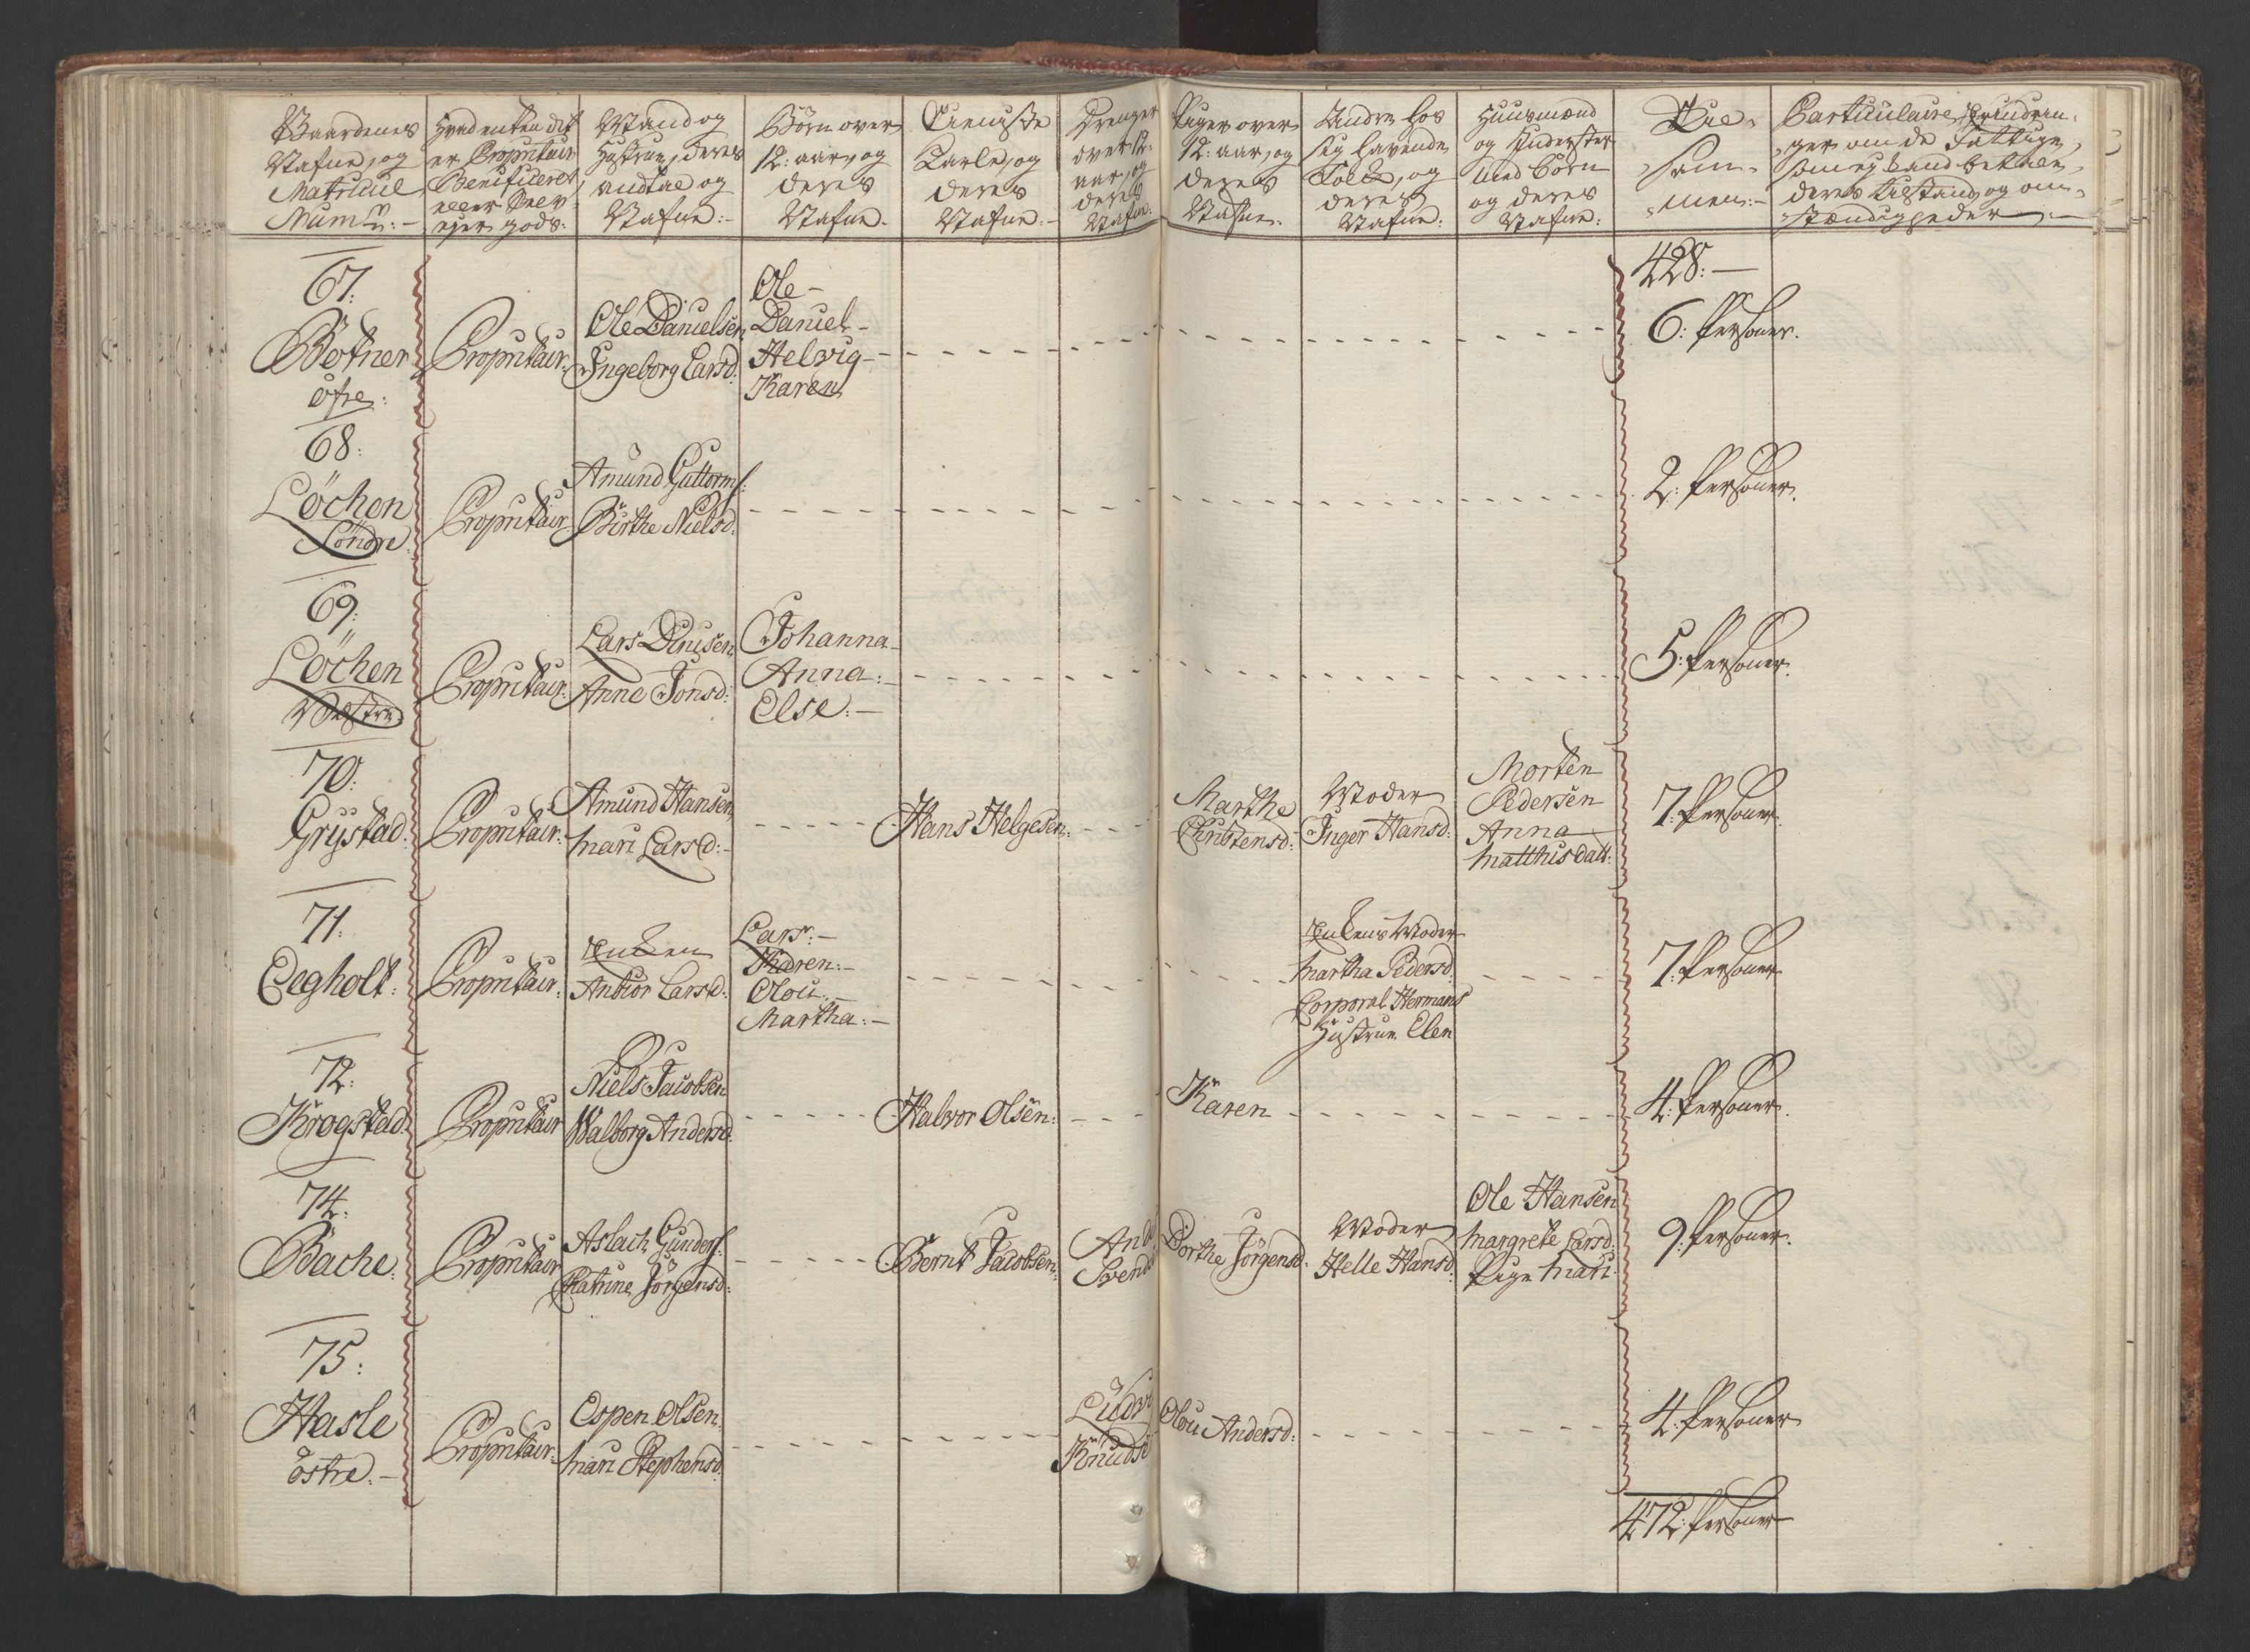 Gaardenes
Nafne, og
Matricul
Num:
Hvad enten det
er Proprietair
Beneficeret
eller Selv
ejer gods:
Mand og
Hustrue, deres
andtal og
Nafne:
Börn over
12: aar, og
deres
Nafne
Tieniste
Karle, og
deres
Nafne:
Drenger
over 12:
aar, og
deres
Nafne
Piger over
12: aar, og
deres
Nafne.
Andre hos
sig havende
Folk, og
deres
Nafne:
Huusmænd
og Inderster
med Börn
og deres
Nafne:
Til-
sam-
men:
Particulaire Erindrin-
ger om de Fattige,
som ej kand betale,
deres Tilstand og om-
stændigheder
67:
Botner
öfre:
Proprietair:
Ole Danielsen
Ingeborg Larsd:
Ole
Daniel
Helvig
Karen
428:
6: Personer.
68:
Löchen
Söndre
Proprietair
Amund Guttorms:
Birthe Nielsd:
2: Personer.
69:
Löchen
Vestre
Proprietair:
Lars
Anne Jonsd:
Johanna
Anna:
Else:
5: Personer.
70:
Grystad:
Proprietair:
Amund Hansen
Mari Larsd:
Hans Helgesen:
Marthe
Christensd:
Moder
Inger Hansd:
Morten
Pedersen
Anna
Matthisdatt:
7: Personer.
71:
Eegholt:
Proprietair:
Enken
Anthor Larsd:
Lars:
Karen:
Olou:
Martha:
Enkens Moder
Martha Pedersd
Corporal Hermans
Hustrue Elen
7: Personer
72:
Krogstad:
Proprietair
Niels Jacobsen
Walborg Andersd:
Halvor Olsen:
Karen
4: Personer.
74:
Bache:
Proprietair
Aslach Gunders:
Chatrine Jörgensd:
Bernt Jacobsen:
And
Svends
Dorthe Jörgensd.
Moder
Helle Hansd:
Ole Hansen
Margrete Larsd:
Pige Mari:
9: Personer.
75:
Hasle
östre.
Proprietair:
Espen Olsen
Mari Stephensd:
Ludvi
Knudse
Olou Andersd:
4: Personer
472: Personer